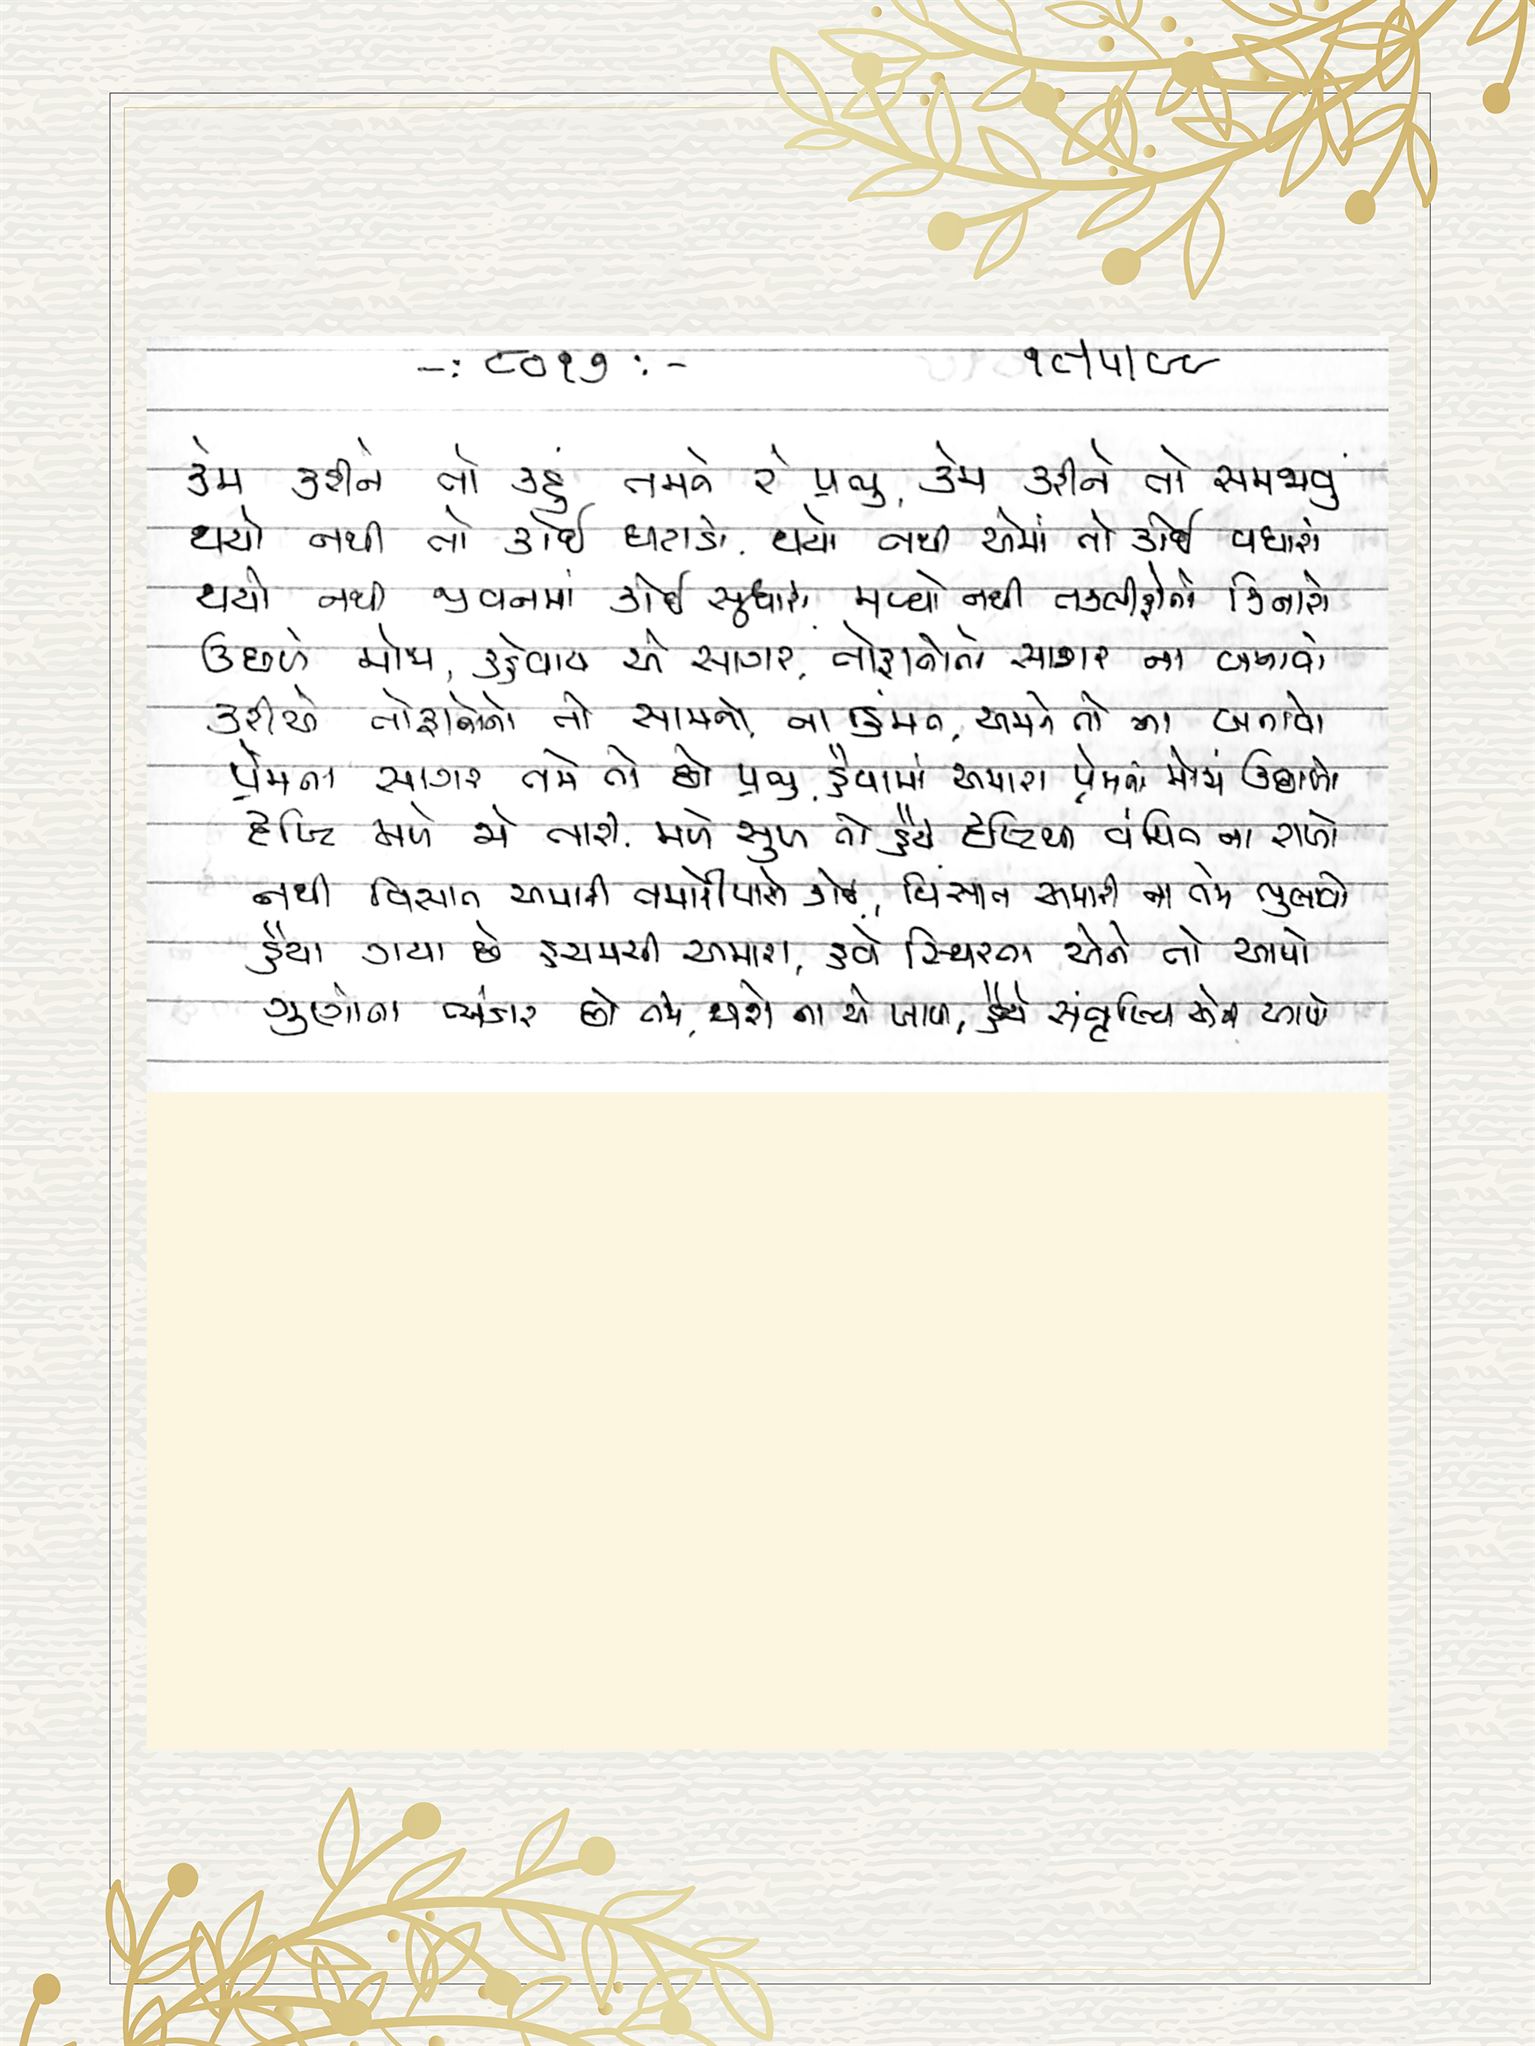 -: ૮૦૧૭ :- ૧૯/૫/૯૯
કેમ કરીને તો કહું તમને રે પ્રભુ, કેમ કરીને તો સમજાવું
થયો નથી તો કોઈ ઘટાડો, થયો નથી એમાં તો કોઈ વધારો
થયો નથી જીવનમાં કોઈ સુધારો, મળ્યો નથી તકલીફોનો કિનારો
ઉછળે મોજા, કહેવાય એ સાગર, તોફાનોનો સાગર ના બનાવો
કરીએ તોફાનોનો તો સામનો, ના હિંમત, અમને તો ના બનાવો
પ્રેમના સાગર તમે તો છો પ્રભુ, હૈયામાં અમારા પ્રેમનાં મોજાં ઉછાળો
દૃષ્ટિ મળે એ તારી, મળે સુખ તો હૈયે દૃષ્ટિથી વંચિત ના રાખો
નથી વિસાત અમારી તમારી પાસે કોઈ, વિસાત અમારી ના તમે ભુલાવો
હૈયા ગયા છે હચમચી અમારા, હવે સ્થિરતા એને તો આપો
ગુણોના ભંડાર છો તમે, થશે ના એ ખાલી, હૈયે સંતૃપ્તિ એવી આપો